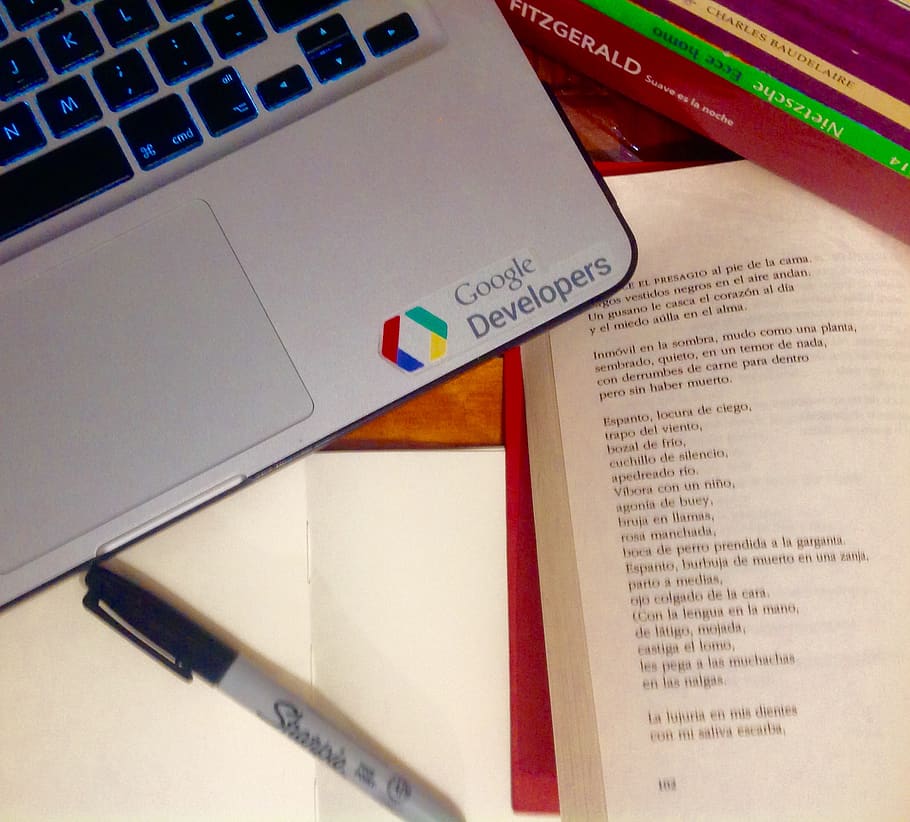 K
L
J
:
;
"
'
<
,
>
.
?
/
N
M
⌘
cmd
alt
⌥
Google
Developers
FITZGERALD Suave es la noche
Nietzsche Ecce homo
14
CHARLES BAUDELAIRE
EL PRESAGIO al pie de la cama.
vestidos negros en el aire andan.
Un gusano le casca el corazón al día
y el miedo aúlla en el alma.
Inmóvil en la sombra, mudo como una planta,
sembrado, quieto, en un temor de nada,
con derrumbes de carne para dentro
pero sin haber muerto.
Espanto, locura de ciego,
trapo del viento,
bozal de frío,
cuchillo de silencio,
apedreado río.
Víbora con un niño,
agonía de buey,
bruja en llamas,
rosa manchada,
boca de perro prendida a la garganta.
Espanto, burbuja de muerto en una zanja,
parto a medias,
ojo colgado de la cara.
(Con la lengua en la mano,
de látigo, mojada,
castiga el lomo,
les pega a las muchachas
en las nalgas.
La lujuria en mis dientes
con mi saliva escarba,
103
Sharpie